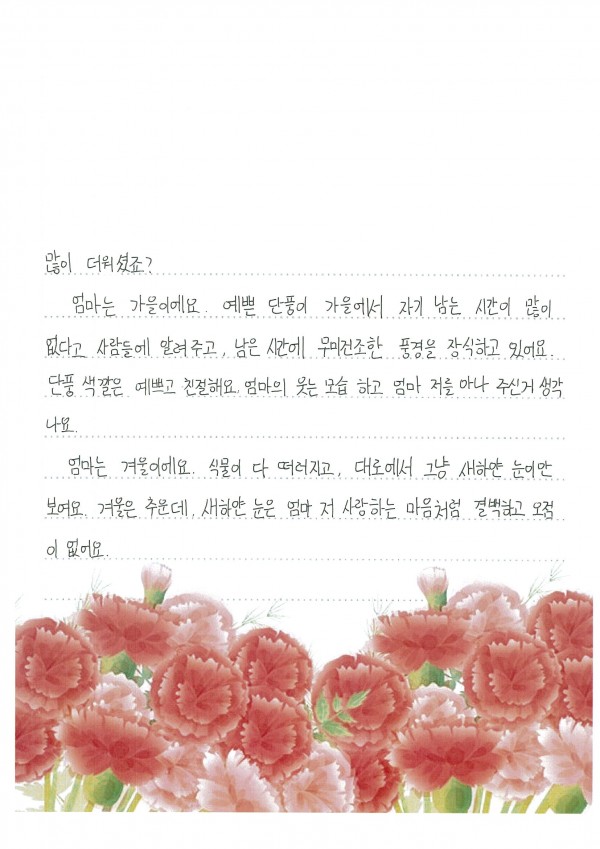 많이 더워셨죠?
엄마는 가을이에요. 예쁜 단풍이 가을에서 자기 남는 시간이 많이
없다고 사람들에 알려주고, 남은 시간에 무미건조한 풍경을 장식하고 있어요.
단풍 색깔은 예쁘고 친절해요. 엄마의 웃는 모습 하고 엄마 저를 아나 주신거 생각
나요.
엄마는 겨울이에요. 식물이 다 떠러지고, 대로에서 그냥 새하얀 눈이만
보여요. 겨울은 추운데, 새하얀 눈은 엄마 저 사랑하는 마음처럼 결벽하고 오점
이 없어요.